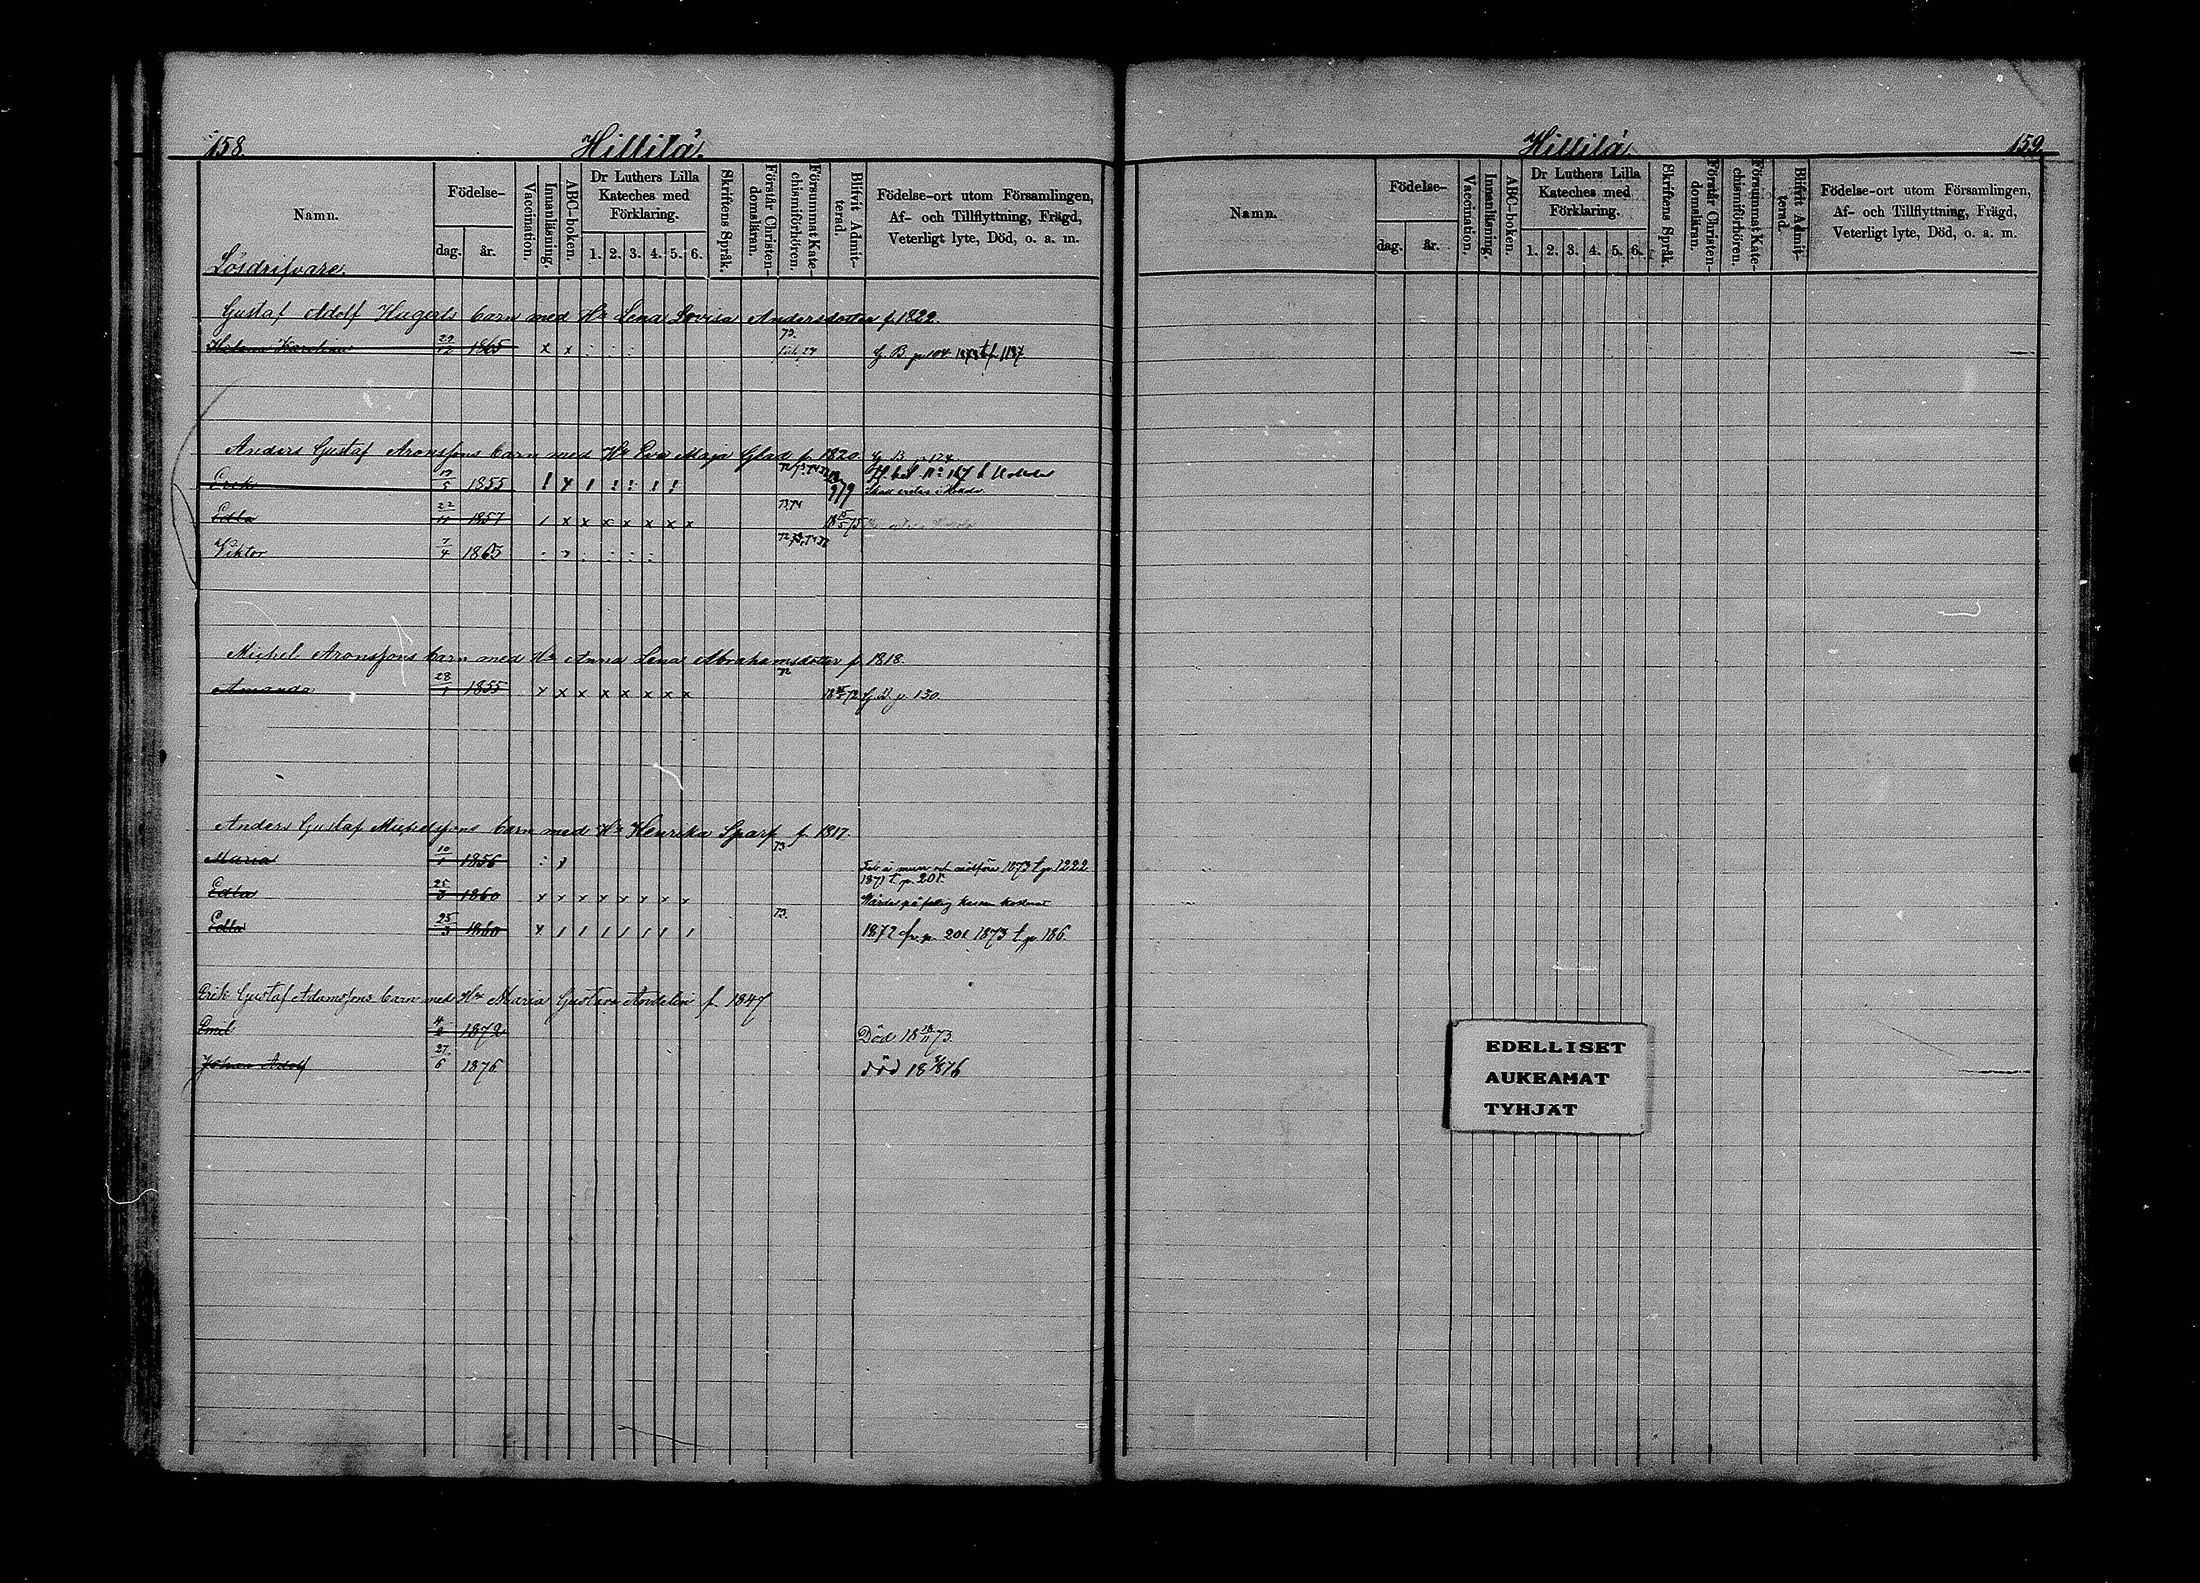 158.
Hillilä.
Namn.
Födelse-
dag.
år.
Vaccination.
Innanläsning.
ABC-boken.
Dr Luthers Lilla
Kateches med
Förklaring.
1. 2. 3. 4. 5. 6.
Skriftens Språk.
Förstår Christen-
domsläran.
Försummat Kate-
chismiförhören.
Blifvit Admit-
terad.
Födelse-ort utom Församlingen,
Af- och Tillflyttning, Frägd,
Veterligt lyte, Död, o. a. m.
Lösdrifvare.
Gustaf Adolf Hagerts barn med Hu Lena Lovisa Andersdotter f. 1822.
73.
Helena Karolina 29/12 1865 x x : : : B. p. 104 1873
Anders Gustaf Aronssons barn med Hu Eva Maja Glad f. 1820. B. p. 124
Erik 1855 ! x ! : : ! ! No 167
Edla 22/11 1857 / x x x x x x x 73,74 18 75
Viktor 7/4 1865 : : : : :
Michel Aronssons barn med Hu Anna Lena Abrahamsdotter f. 1818.
72
Amanda 28/1 1855 x x x x x x x x 18 72 p. 130.
Anders Gustaf Michelssons barn med Hu Henrika Sparf f. 1817.
73
Maria 10/1 1856 : x 1873 t. p. 1222
1871 t. p. 201.
Edla 25/3 1860 x x x x x x x x Vårdas på
73.
Edla 25/3 1860 x / / / / / / / 1872 fr. p. 201 1873 t. p. 186.
Erik Gustaf Adamssons barn med Hu Maria Gustava Andelin f. 1847
Emil 1872 Död 18 18/11 73.
Johan Adolf 27/6 1876. död 18 76
Hillilä.
159.
Namn.
Födelse-
dag.
år.
Vaccination.
Innanläsning.
ABC-boken.
Dr Luthers Lilla
Kateches med
Förklaring.
1. 2. 3. 4. 5. 6.
Skriftens Språk.
Förstår Christen-
domsläran.
Försummat Kate-
chismiförhören.
Blifvit Admit-
terad.
Födelse-ort utom Församlingen,
Af- och Tillflyttning, Frägd,
Veterligt lyte, Död, o. a. m.
EDELLISET
AUKEAMAT
TYHJÄT